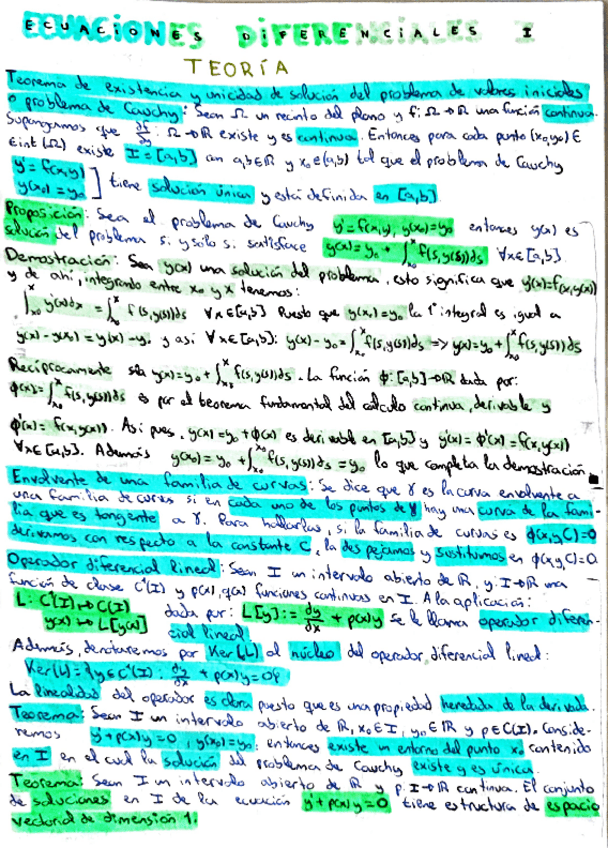 ECUACIONES DIFERENCIALES I
TEORÍA
Teorema de existencia y unicidad de solución del problema de valores iniciales
o problema de Cauchy: Sean Ω un recinto del plano y f: Ω→ℝ una función continua.
Supongamos que ∂f/∂y : Ω→ℝ existe y es continua. Entonces para cada punto (x₀,y₀) ∈
∈ int(Ω) existe I = [a,b] con a,b∈ℝ y x₀∈(a,b) tal que el problema de Cauchy
y' = f(x,y)
y(x₀) = y₀ ] tiene solución única y está definida en [a,b].
Proposición: Sea el problema de Cauchy y'=f(x,y), y(x₀)=y₀ entonces y(x) es
solución del problema si y solo si satisface y(x) = y₀ + ∫_{x₀}^{x} f(s,y(s))ds ∀x∈[a,b].
Demostración: Sea y(x) una solución del problema, esto significa que y'(x)=f(x,y(x))
y de ahí, integrando entre x₀ y x tenemos:
∫_{x₀}^{x} y'(x)dx = ∫_{x₀}^{x} f(s,y(s))ds ∀x∈[a,b] Puesto que y(x₀)=y₀ la 1ª integral es igual a
y(x)-y(x₀) = y(x)-y₀ y así ∀x∈[a,b]: y(x)-y₀ = ∫_{x₀}^{x} f(s,y(s))ds => y(x)=y₀+∫_{x₀}^{x} f(s,y(s))ds
Recíprocamente si y(x)=y₀+∫_{x₀}^{x} f(s,y(s))ds. La función ϕ: [a,b]→ℝ dada por:
ϕ(x)=∫_{x₀}^{x} f(s,y(s))ds es por el teorema fundamental del cálculo continua, derivable y
ϕ'(x) = f(x,y(x)). Así pues, y(x) = y₀+ϕ(x) es derivable en [a,b] y y'(x) = ϕ'(x) = f(x,y(x))
∀x∈[a,b]. Además y(x₀) = y₀ + ∫_{x₀}^{x₀} f(s,y(s))ds = y₀ lo que completa la demostración ■
Envolvente de una familia de curvas: Se dice que γ es la curva envolvente a
una familia de curvas si en cada uno de los puntos de γ hay una curva de la fami-
lia que es tangente a γ. Para hallarlas, si la familia de curvas es ϕ(x,y,C)=0
derivamos con respecto a la constante C, la despejamos y sustituimos en ϕ(x,y,C)=0.
Operador diferencial lineal: Sean I un intervalo abierto de ℝ, y: I→ℝ una
función de clase C¹(I) y p(x), q(x) funciones continuas en I. A la aplicación:
L: C¹(I) ↦ C(I)
y(x) ↦ L[y(x)] dada por: L[y] := dy/dx + p(x)y se le llama operador diferen-
cial lineal.
Además, denotaremos por Ker(L) al núcleo del operador diferencial lineal:
Ker(L) = {y∈C¹(I): dy/dx + p(x)y = 0}
La linealidad del operador es clara puesto que es una propiedad heredada de la derivada.
Teorema: Sean I un intervalo abierto de ℝ, x₀∈I, y₀∈ℝ y p∈C(I). Conside-
remos y'+p(x)y=0, y(x₀)=y₀; entonces existe un entorno del punto x₀ contenido
en I en el cual la solución del problema de Cauchy existe y es única.
Teorema: Sean I un intervalo abierto de ℝ y p: I→ℝ continua. El conjunto
de soluciones en I de la ecuación y'+p(x)y=0 tiene estructura de espacio
vectorial de dimensión 1.